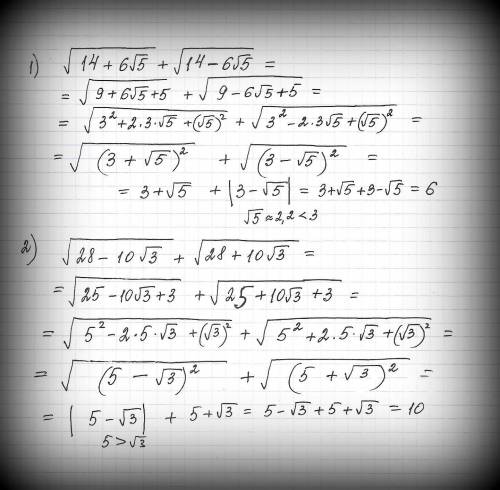 1) √(14 + 6√5) + √(14 - 6√5) =
= √(9 + 6√5 + 5) + √(9 - 6√5 + 5) =
= √(3² + 2·3·√5 + (√5)²) + √(3² - 2·3√5 + (√5)²) =
= √((3 + √5)²) + √((3 - √5)²) =
= 3 + √5 + |3 - √5| = 3 + √5 + 3 - √5 = 6
√5 ≈ 2,2 < 3
2) √(28 - 10√3) + √(28 + 10√3) =
= √(25 - 10√3 + 3) + √(25 + 10√3 + 3) =
= √(5² - 2·5·√3 + (√3)²) + √(5² + 2·5·√3 + (√3)²) =
= √((5 - √3)²) + √((5 + √3)²) =
= |5 - √3| + 5 + √3 = 5 - √3 + 5 + √3 = 10
5 > √3